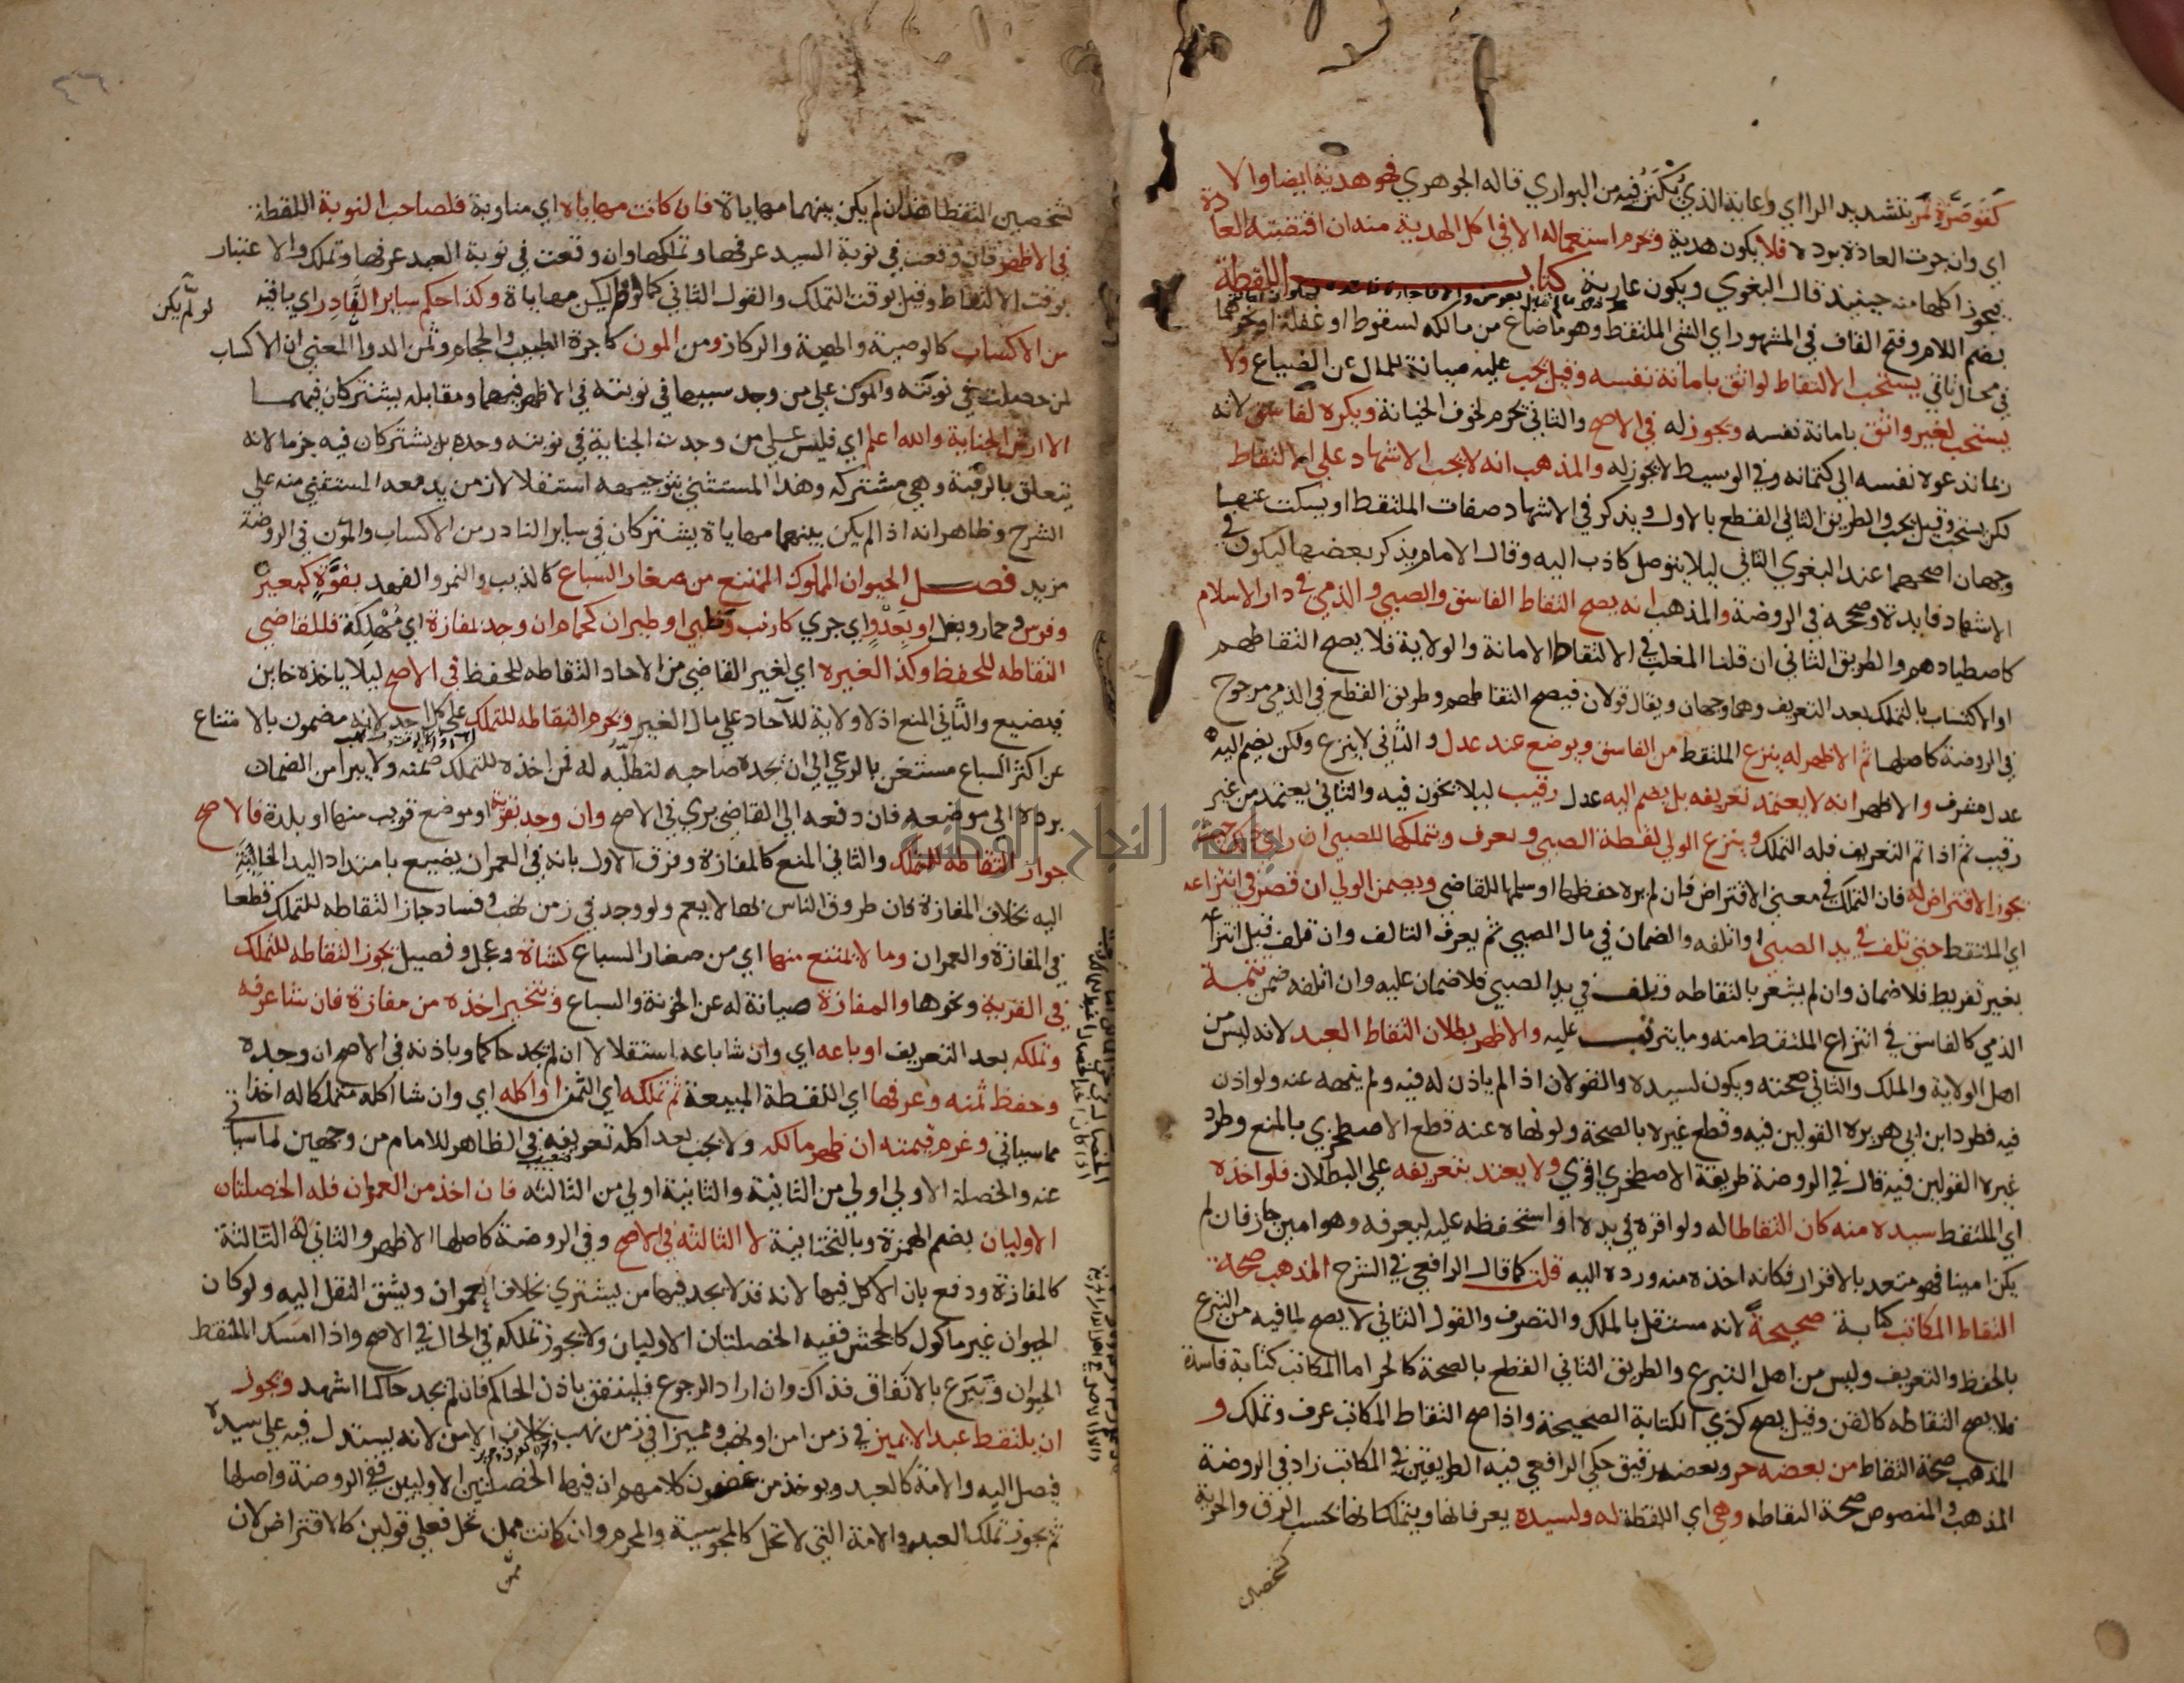 كقوصرة تمر بتشديد الرا اي وعاية الذي يكنز فيه من البواري قاله الجوهري فهو هدية ايضا والا
اي وان جرت العادة برده فلا يكون هدية وحرم استعماله الا في اكل الهدية منه ان اقتضته العادة
فيجوز اكلها منه حينيذ قال البغوي ويكون عارية كتاب اللقطة
بضم اللام وفتح القاف في المشهور اي الشي الملتقط وهو ما ضاع من مالكه لسقوط او غفلة او نحوهما
في محال تاتي يستحب الالتقاط لواثق بامانة نفسه وقيل يجب عليه صيانة للمال عن الضياع ولا
يستحب لغير واثق بامانة نفسه ويجوز له في الاصح والثاني يحرم لخوف الخيانة ويكره لفاسق لانه
ربما تدعوه نفسه الى كتمانه وفي الوسيط لا يجوز له والمذهب انه لا يجب الاشهاد على الالتقاط
لكن يستحب وقيل يجب والطريق الثاني القطع بالاول ويذكر في الاشهاد صفات الملتقط او يسكت عنها
وجهان اصحهما عند البغوي الثاني ليلا يتوصل كاذب اليه وقال الامام يذكر بعضها ليكون في
الاشهاد فايدة وصححه في الروضة والمذهب انه يصح التقاط الفاسق والصبي والذمي في دار الاسلام
كاصطيادهم والطريق الثاني ان قلنا المغلب في الالتقاط الامانة والولاية فلا يصح التقاطهم
او الاكتساب بالتملك بعد التعريف وهما وجهان ويقال قولان فيصح التقاطهم وطريق القطع في الذمي مرجوح
في الروضة كاصلها ثم الاظهر له ينزع الملتقط من الفاسق ويوضع عند عدل والثاني لا ينزع ولكن يضم اليه
عدل مشرف والاظهر انه لا يعتمد تعريفه بل يضم اليه عدل رقيب ليلا يخون فيه والثاني يعتمد من غير
رقيب ثم اذا تم التعريف فله التملك وينزع الولي لقطة الصبي ويعرف ويتملكها للصبي ان راى ذلك حيث
يجوز الاقتراض له فان التملك في معنى الاقتراض فان لم يره حفظها او سلمها للقاضي ويضمن الولي ان قصر في انتزاعه
اي الملتقط حتى تلف في يد الصبي او اتلفه والضمان في مال الصبي ثم يعرف التالف وان تلف قبل انتزاعه
بغير تفريط فلا ضمان وان لم يشعر بالتقاطه وتلف في يد الصبي فلا ضمان عليه وان اتلفه ضمن تتمة
الذمي كالفاسق في انتزاع الملتقط منه وما يترتب عليه والاظهر بطلان التقاط العبد لانه ليس من
اهل الولاية والملك والثاني صحته ويكون لسيده والقولان اذا لم ياذن له فيه ولم ينهه عنه ولو اذن
فيه فطرد ابن ابي هريرة القولين فيه وقطع غيره بالصحة ولو نهاه عنه قطع الاصطخري بالمنع وطرد
غيره القولين فيه قال في الروضة طريقة الاصطخري اقوي ولا يعتد بتعريفه على البطلان فلو اخذه
اي الملتقط سيده منه كان التقاطا له ولو اقره في يده او استحفظه عليه ليعرفه وهو امين جاز فان لم
يكن امينا فهو متعد بالاقرار فكانه اخذه منه ورده اليه قلت كما قال الرافعي في الشرح المذهب صحة
التقاط المكاتب كتابة صحيحة لانه مستقل بالملك والتصرف والقول الثاني لا يصح لما فيه من التبرع
بالحفظ والتعريف وليس من اهل التبرع والطريق الثاني القطع بالصحة كالحر اما المكاتب كتابة فاسدة
فلا يصح التقاطه كالقن وقيل يصح كذي الكتابة الصحيحة واذا صح التقاط المكاتب عرف وتملك و
المذهب صحة التقاط من بعضه حر وبعضه رقيق حكى الرافعي فيه الطريقين في المكاتب زاد في الروضة
المذهب والمنصوص صحة التقاطه وهي اي اللقطة له ولسيده يعرفانها ويتملكانها بحسب الرق والحرية
كشخصين
لشخصين التقطا هذا ان لم يكن بينهما مهاياة فان كانت مهاياة اي مناوبة فلصاحب النوبة اللقطة
في الاظهر فان وقعت في نوبة السيد عرفها وتملكها وان وقعت في نوبة العبد عرفها وتملك والاعتبار
بوقت الالتقاط وقيل بوقت التملك والقول الثاني كما لو لم يكن مهاياة وكذا حكم ساير النادر اي باقيه
لو لم يكن
من الاكساب كالوصية والهبة والركاز ومن المون كاجرة الطبيب والحجام وثمن الدوا المعنى ان الاكساب
لمن حصلت في نوبته والمون على من وجد سببها في نوبته في الاظهر فيهما ومقابله يشتركان فيهما
الا ارش الجناية والله اعلم اي فليس على من وجدت الجناية في نوبته وحده بل يشتركان فيه جزما لانه
يتعلق بالرقبة وهي مشتركة وهذا المستثنى بتوجيهه استقلالا زمن يد معه المستثنى منه على
الشرح وظاهر انه اذا لم يكن بينهما مهاياة يشتركان في ساير النادر من الاكساب والمون في الروضة
مزيد فصل الحيوان المملوك الممتنع من صغار السباع كالذيب والنمر والفهد بقوة كبعير
وفرس وحمار وبغل او بعدو اي جري كارنب وظبي او طيران كحمام ان وجد بمفازة اي مهلكة فللقاضي
التقاطه للحفظ وكذا لغيره اي لغير القاضي من الاحاد التقاطه للحفظ في الاصح ليلا ياخذه خاين
فيضيع والثاني المنع اذ لا ولاية للاحاد على مال الغير ويحرم التقاطه للتملك على كل احد لانه مضمون بالامتناع
عن اكثر السباع مستغن بالرعي الى ان يجده صاحبه لتطلبه له فمن اخذه للتملك ضمنه ولا يبرا من الضمان
برده الى موضعه فان دفعه الى القاضي بري في الاصح وان وجد بقرية او موضع قريب منها او بلدة فالاصح
جواز التقاطه للتملك والثاني المنع كالمفازة وفرق الاول بانه في العمران يضيع بامتداد اليد الخاينة
اليه بخلاف المفازة فان طروق الناس بها لا يعم ولو وجد في زمن نهب وفساد جاز التقاطه للتملك قطعا
في المفازة والعمران وما لا يمتنع منها اي من صغار السباع كشاة وعجل وفصيل يجوز التقاطه للتملك
في القرية ونحوها والمفازة صيانة له عن الخونة والسباع ويتخير اخذه من مفازة فان شا عرفه
وتملكه بعد التعريف او باعه اي وان شا باعه استقلالا ان لم يجد حاكما وباذنه في الاصح ان وجده
وحفظ ثمنه وعرفها اي اللقطة المبيعة ثم تملكه اي الثمن او اكله اي وان شا اكله متملكا له اخذا
مما سياتي وغرم قيمته ان ظهر مالكه ولا يجب بعد اكله تعريفه في الظاهر للامام من وجهين لما سياتي
عنه والخصلة الاولى اولى من الثانية والثانية اولى من الثالثه فان اخذ من العمران فله الخصلتان
الاوليان بضم الهمزة وبالتحتانية لا الثالثه في الاصح وفي الروضة كاصلها الاظهر والثاني له الثالثة
كالمفازة ودفع بان الاكل فيها لانه قد لا يجد فيها من يشتري بخلاف العمران ويشق النقل اليه ولو كان
الحيوان غير ماكول كالجحش ففيه الخصلتان الاوليان ولا يجوز تملكه في الحال في الاصح واذا امسك الملتقط
الحيوان وتبرع بالانفاق فذاك وان اراد الرجوع فلينفق باذن الحاكم فان لم يجد حاكما اشهد ويجوز
ان يلتقط عبد الا يميز في زمن امن او نهب ومميزا في زمن نهب بخلاف الامن لانه يستدل فيه على سيده
فيصل اليه والامة كالعبد ويوخذ من غضون كلامهم ان فيها الخصلتين الاوليين ففي الروضة واصلها
ثم يجوز تملك العبد والامة التي لا تحل كالمجوسية والمحرم وان كانت ممن تحل فعلى قولين كالاقتراض لان
جامعة النجاح الوطنية